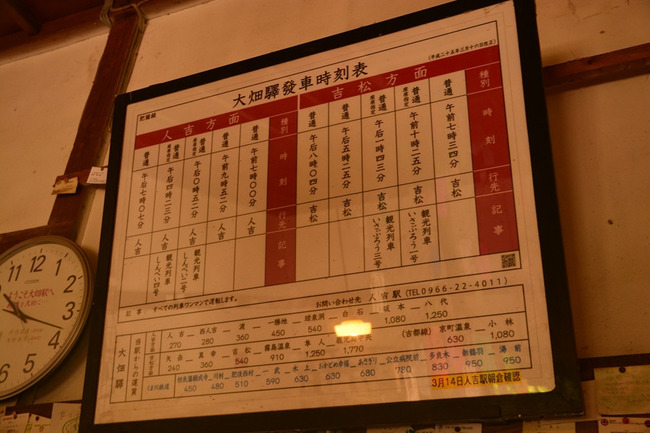 大畑驛發車時刻表
(平成二十五年三月十六日改正)
肥薩線
吉松方面
種別 時刻 行先 記事
普通 午前七時三四分 吉松
普通 座席指定 午前十時二五分 吉松 観光列車 いさぶろう一号
普通 座席指定 午后一時四三分 吉松 観光列車 いさぶろう三号
普通 午后五時二五分 吉松
普通 午后八時〇四分 吉松
人吉方面
種別 時刻 行先 記事
普通 午前七時〇〇分 人吉
普通 午前九時五二分 人吉
普通 座席指定 午后〇時五二分 人吉 観光列車 しんぺい二号
普通 座席指定 午后四時二三分 人吉 観光列車 しんぺい四号
普通 午后七時〇七分 人吉
記事 すべての列車ワンマンで運転します。
お問い合わせ先 人吉駅(TEL0966-22-4011)
大畑驛
当駅からの運賃
人吉 西人吉 渡 一勝地 球泉洞 白石 坂本 八代
270 280 360 450 540 1,080 1,250
矢岳 真幸 吉松 霧島温泉 隼人 鹿児島中央 (吉都線) 京町温泉 小林
240 360 540 910 1,250 1,770 630 1,080
くま川鉄道 相良藩願成寺 川村 肥後西村 一武 木上 おかどめ幸福 あさぎり 公立病院前 多良木 新鶴羽 湯前
450 480 510 590 630 630 680 780 830 950 950
3月14日人吉駅朝倉確認
ようこそ大畑駅へ
CITIZEN